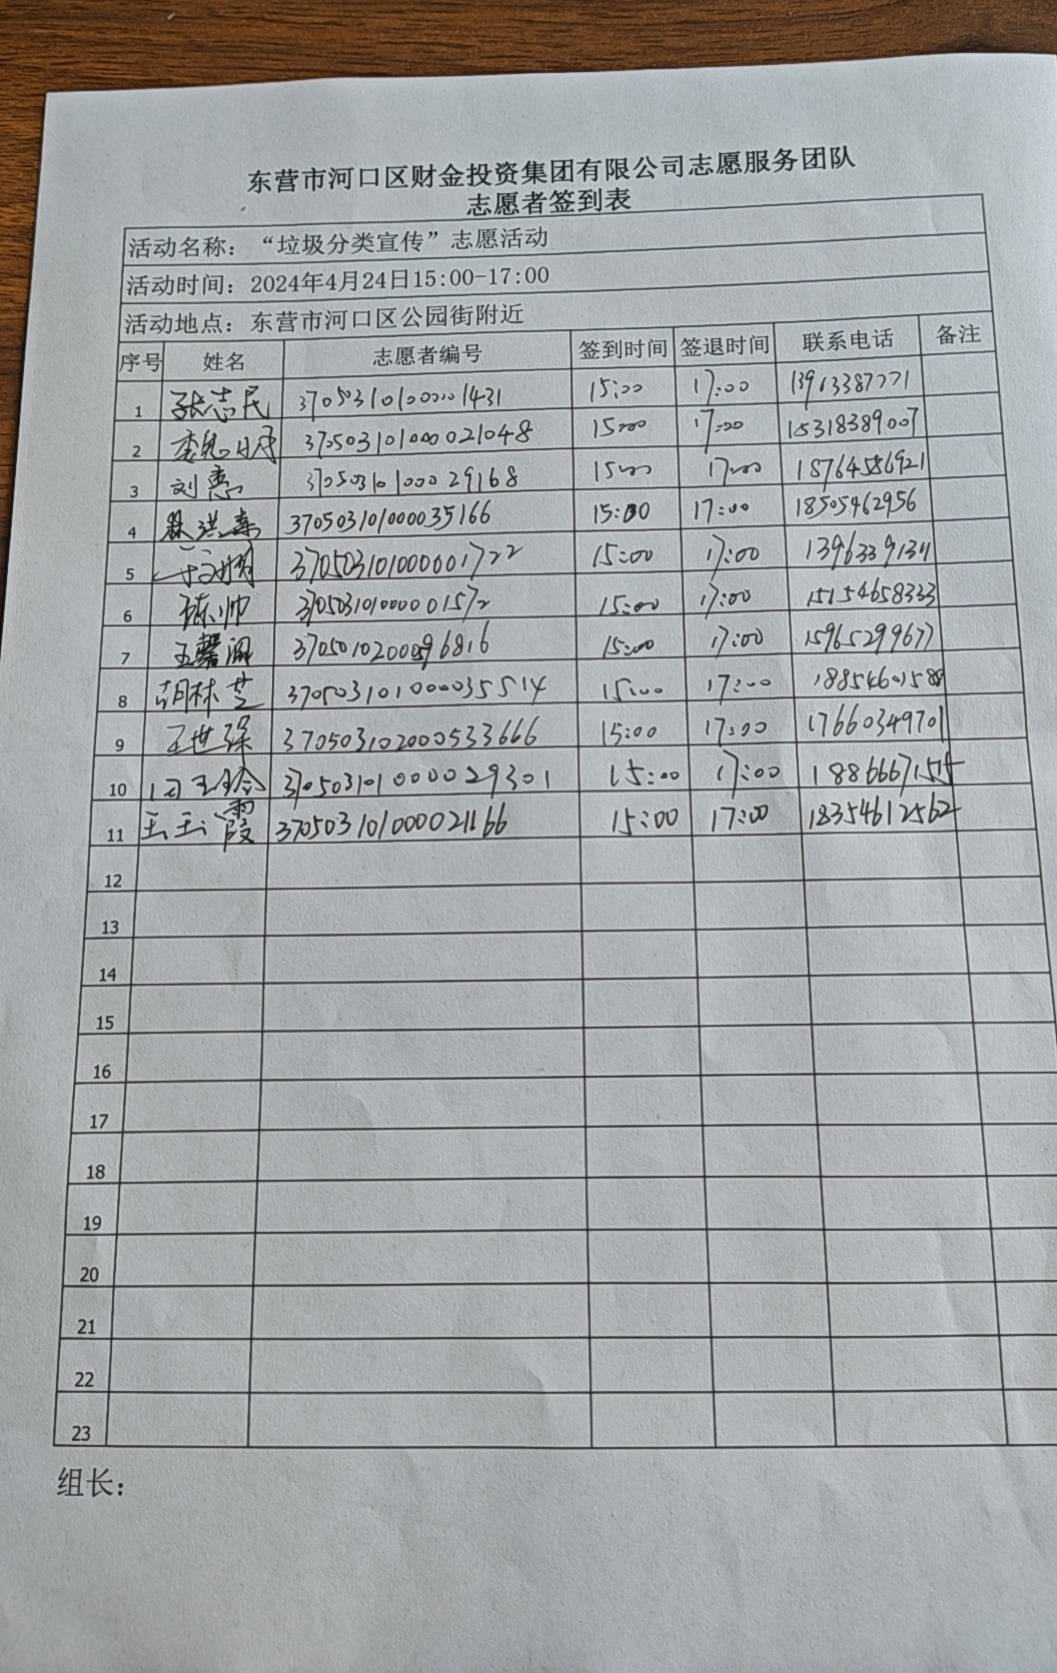 东营市河口区财金投资集团有限公司志愿服务团队
志愿者签到表
活动名称：“垃圾分类宣传”志愿活动
活动时间：2024年4月24日15:00-17:00
活动地点：东营市河口区公园街附近
序号 姓名 志愿者编号 签到时间 签退时间 联系电话 备注
1 张志民 15:00 17:00
2 370503101000021048 15:00 17:00 15318389007
3 刘惠 370503101000029168 15:00 17:00 18764586921
4 37050310100035166 15:00 17:00 18505462956
5 15:00 17:00
6 陈帅 15:00 17:00 15154658333
7 王馨阁 15:00 17:00 15965299677
8 胡林芝 15:00 17:00
9 王世强 370503102000533666 15:00 17:00 17660349701
10 15:00 17:00
11 王玉霞 370503101000021166 15:00 17:00 18354612562
12
13
14
15
16
17
18
19
20
21
22
23
组长：